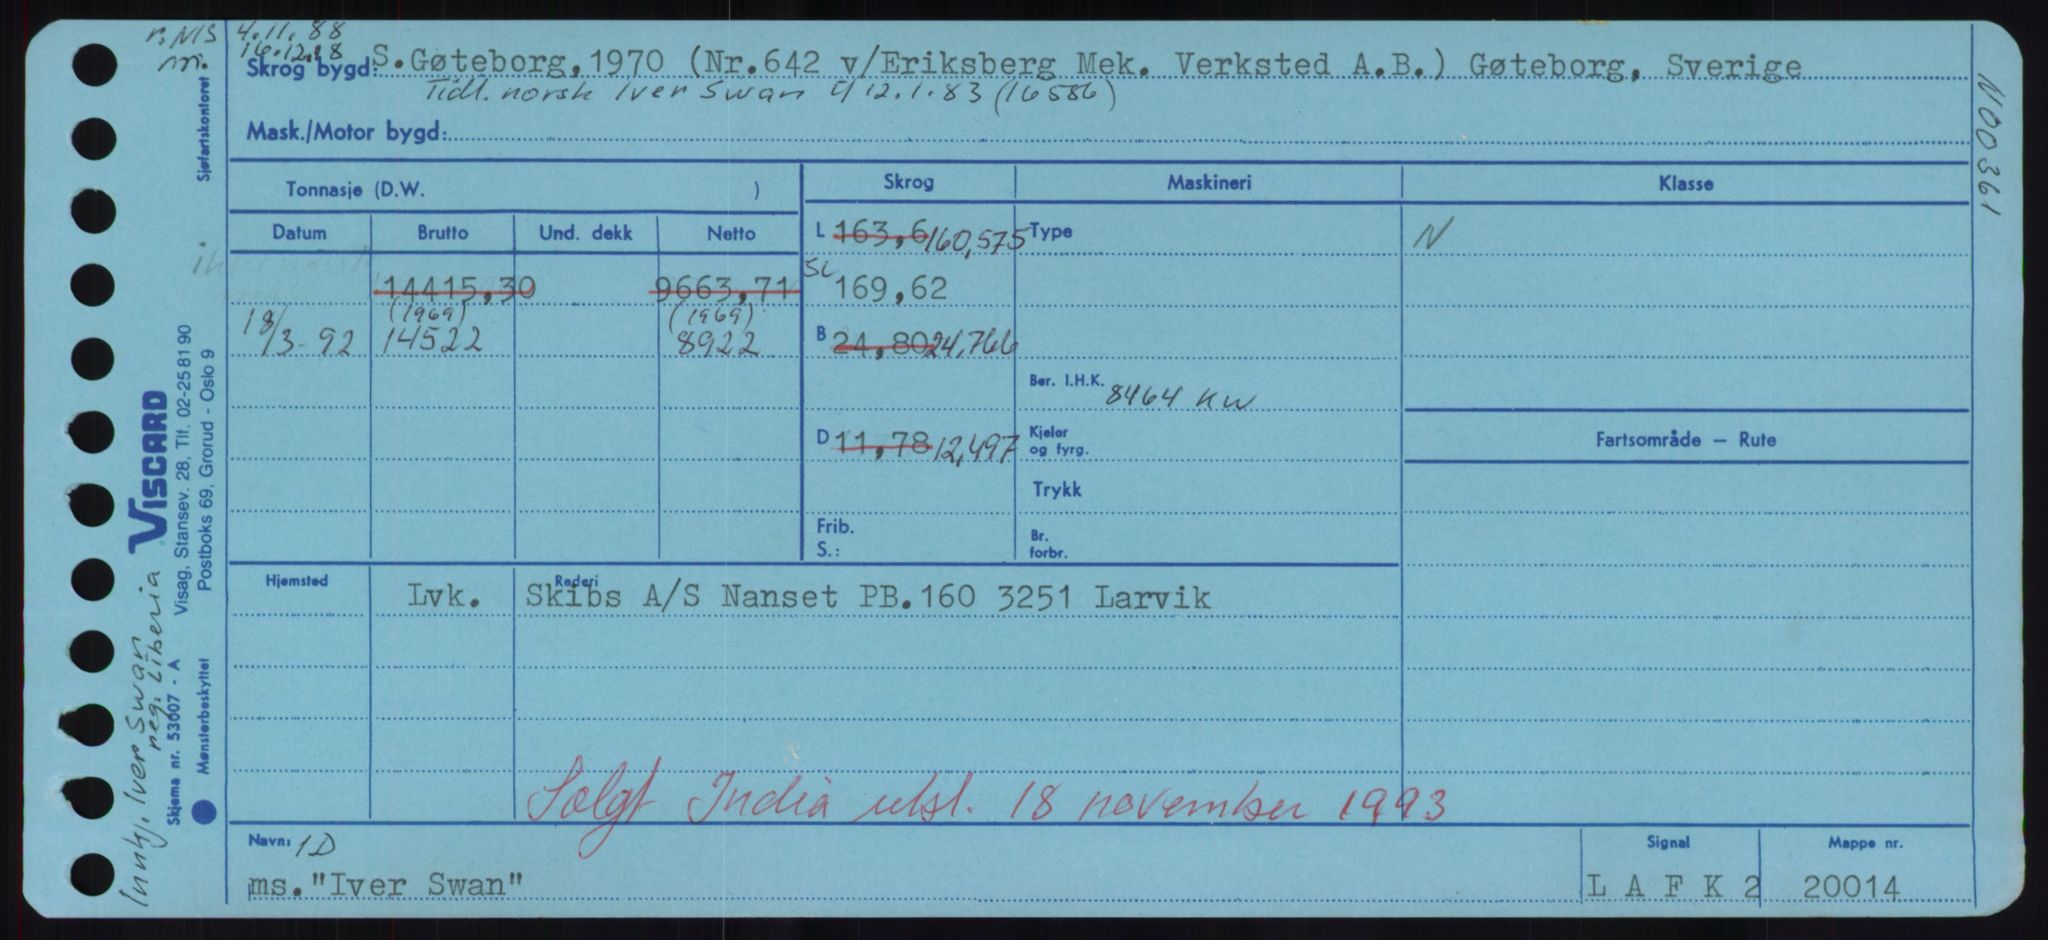 r. NIS 4.11.88
nr. 16.12.88
Skrog bygd: S.Gøteborg, 1970 (Nr.642 v/Eriksberg Mek. Verksted A.B.) Gøteborg, Sverige
Tidl. norsk Iver Swan 12.1.83 (16586)
Mask./Motor bygd:
N00361
Tonnasje (D.W. )
Skrog Maskineri Klasse
Datum Brutto Und. dekk Netto
L 163,6 160,575 Type N
14415,30 9663,71 SL 169,62
(1969) (1969)
18/3-92 14522 8922 B 24,80 24,766
Ber. I.H.K. 8464 KW
D 11,78 12,497 Kjeler og fyrg.
Fartsområde — Rute
Trykk
Frib. S.: Br. forbr.
Hjemsted Rederi
Lvk. Skibs A/S Nanset PB.160 3251 Larvik
Solgt India utsl. 18 november 1993
Navn: 1D Signal Mappe nr.
ms."Iver Swan" L A F K 2 20014
Sjøfartskontoret
VISCARD
Visag, Stansev. 28, Tlf. 02-25 81 90
Postboks 69, Grorud - Oslo 9
Skjema nr. 53007 - A
Mønsterbeskyttet
Innkj. Iver Swan
reg. Liberia